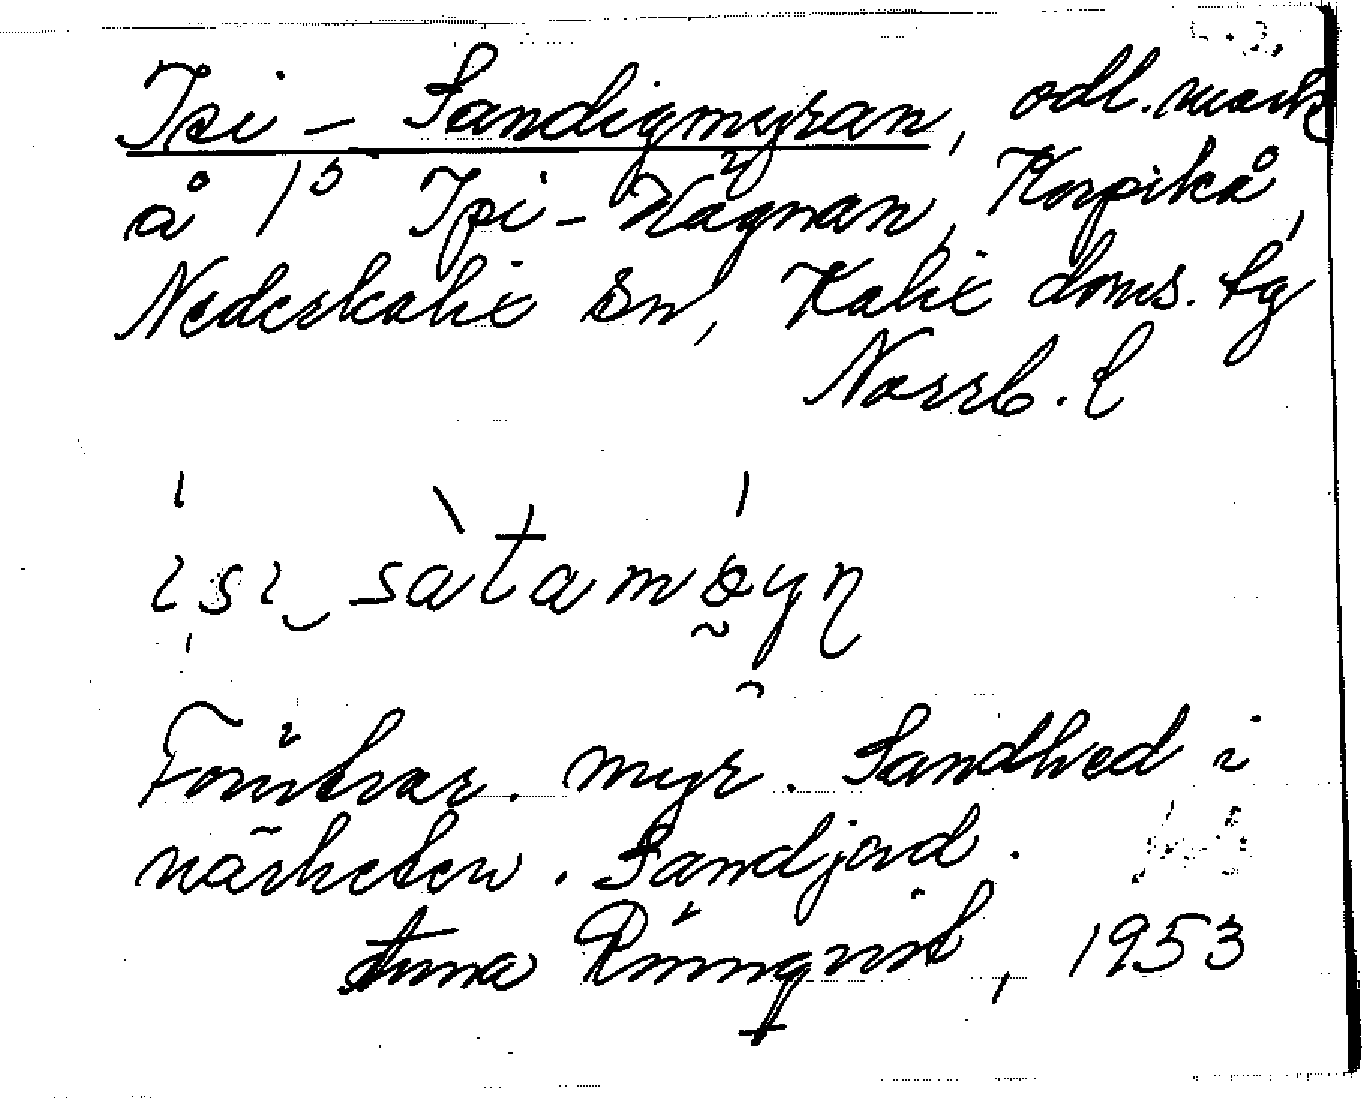 Isi-Sandigmyran, odl. mark
å 1⁵ Isi-Hägnan, Korpikå,
Nederkalix sn, Kalix doms. lg
Norrb. l
ísi sàtamǿyn
Förutvar. myr. Sandhed i
närheten. Sandjord.
Anna Rönnqvist, 1953